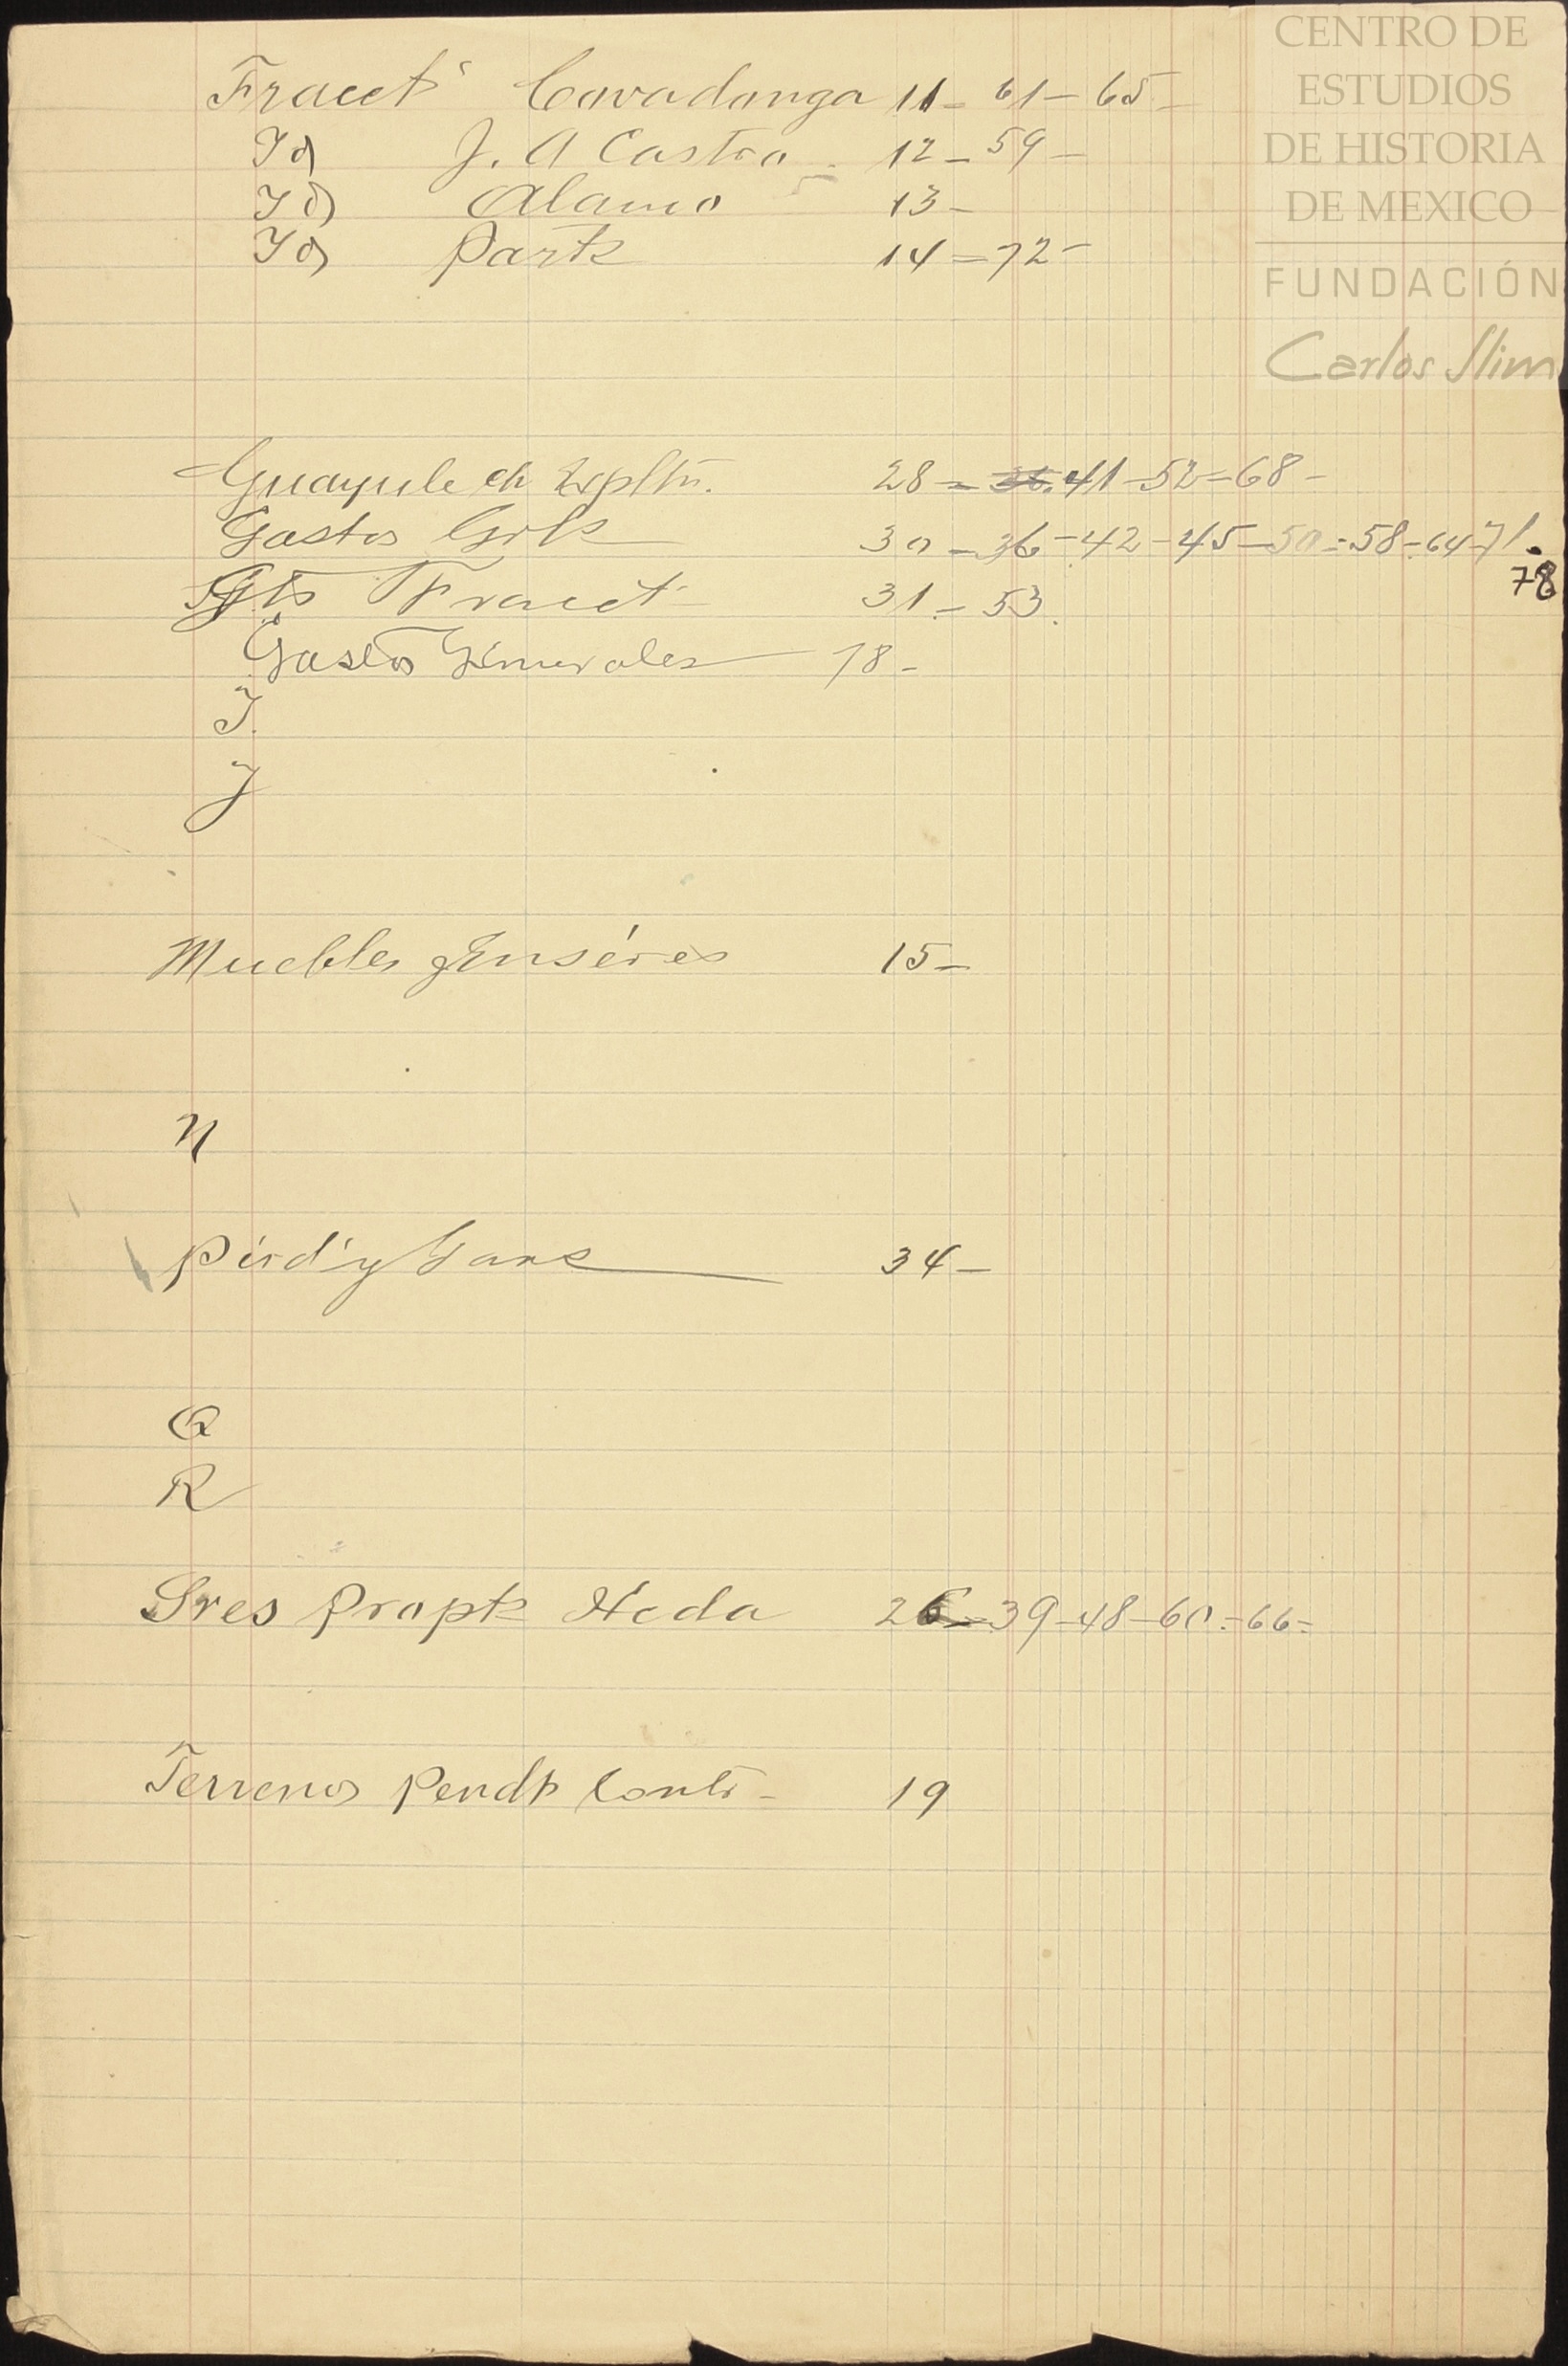 Fracct Covadonga 11 - 61 - 65 -
CENTRO DE
ESTUDIOS
DE HISTORIA
DE MEXICO
FUNDACIÓN
Carlos Slim
Id J. A Castro - 12 - 59 -
Id Alamo 13 -
Id Park 14 = 72 -
Guayule en Expltn. 28 = 36. 41 - 52 = 68 -
Gastos Grls 30 - 36 - 42 - 45 - 50 = 58 - 64 - 71.
78
Gts Fracct 31 - 53.
Gastos Generales 78 -
I.
J
Muebles y Enséres 15 -
N
Perd. y Gans 34 -
Q
R
Sres Propts Hcda 26 - 39 - 48 - 60. - 66 =
Terrenos Pendt Contr - 19